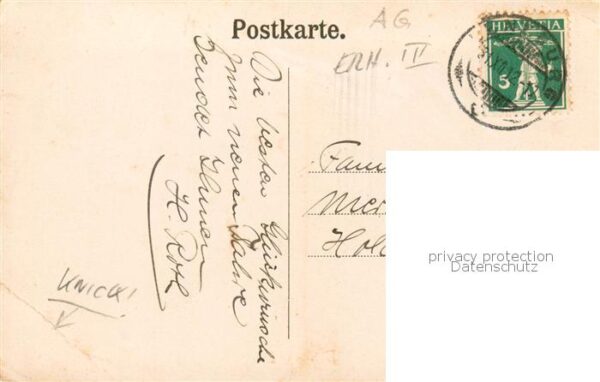 Postkarte.
AG
ERH. IV
HELVETIA
5
Die besten Glückwünsche
zum neuen Jahre
sendet Ihnen
H. Roth
Fam
Mer
Hol
KNICK!
privacy protection
Datenschutz